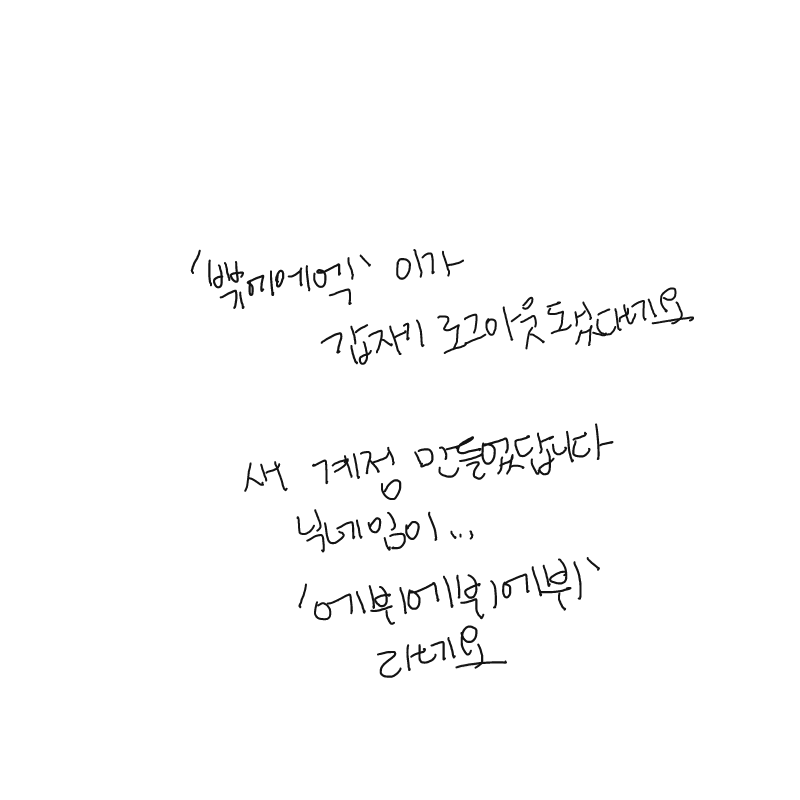 '쀽에에엑' 이가
갑자기 로그아웃 도었다네요
새 계정 만들었답니다
닉네임이...
'에뷔에뷔에뷔'
라네요